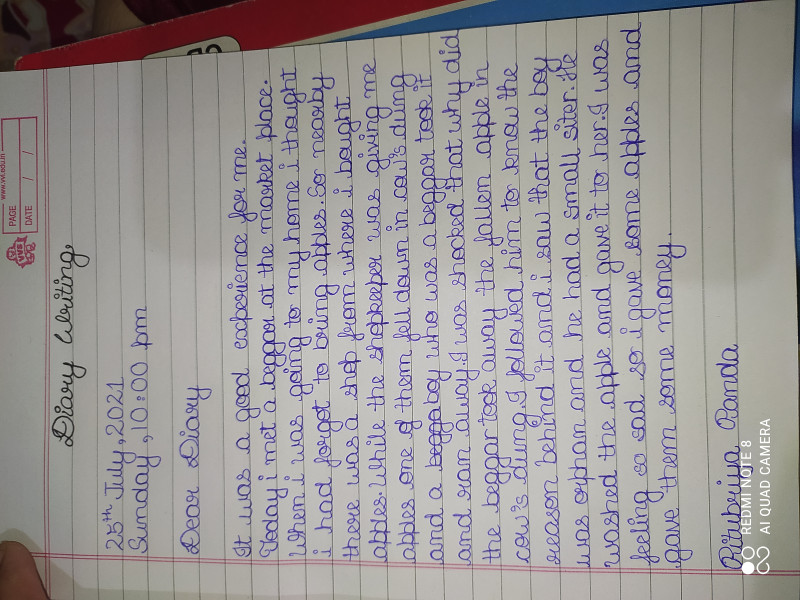 www.vvl.edu.in
PAGE
DATE / /
Diary Writing
25th July, 2021
Sunday, 10:00 pm
Dear Diary
It was a good experience for me.
Today i met a beggar at the market place.
When i was going to my home i thought
i had forgot to bring apples. So nearby
there was a shop from where i bought
apples. While the shopkeeper was giving me
apples one of them fell down in cow's dung
and a begga boy who was a beggar took it
and ran away. I was shocked that why did
the beggar took away the fallen apple in
cow's dung. I followed him to know the
reason behind it and i saw that the boy
was orphan and he had a small siter. He
washed the apple and gave it to her. I was
feeling so sad so i gave some apples and
gave them some money.
Ritubriya Panda
REDMI NOTE 8
AI QUAD CAMERA